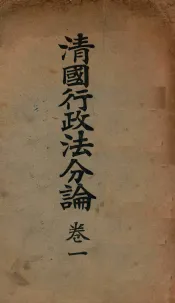 清國行政法分論 卷一